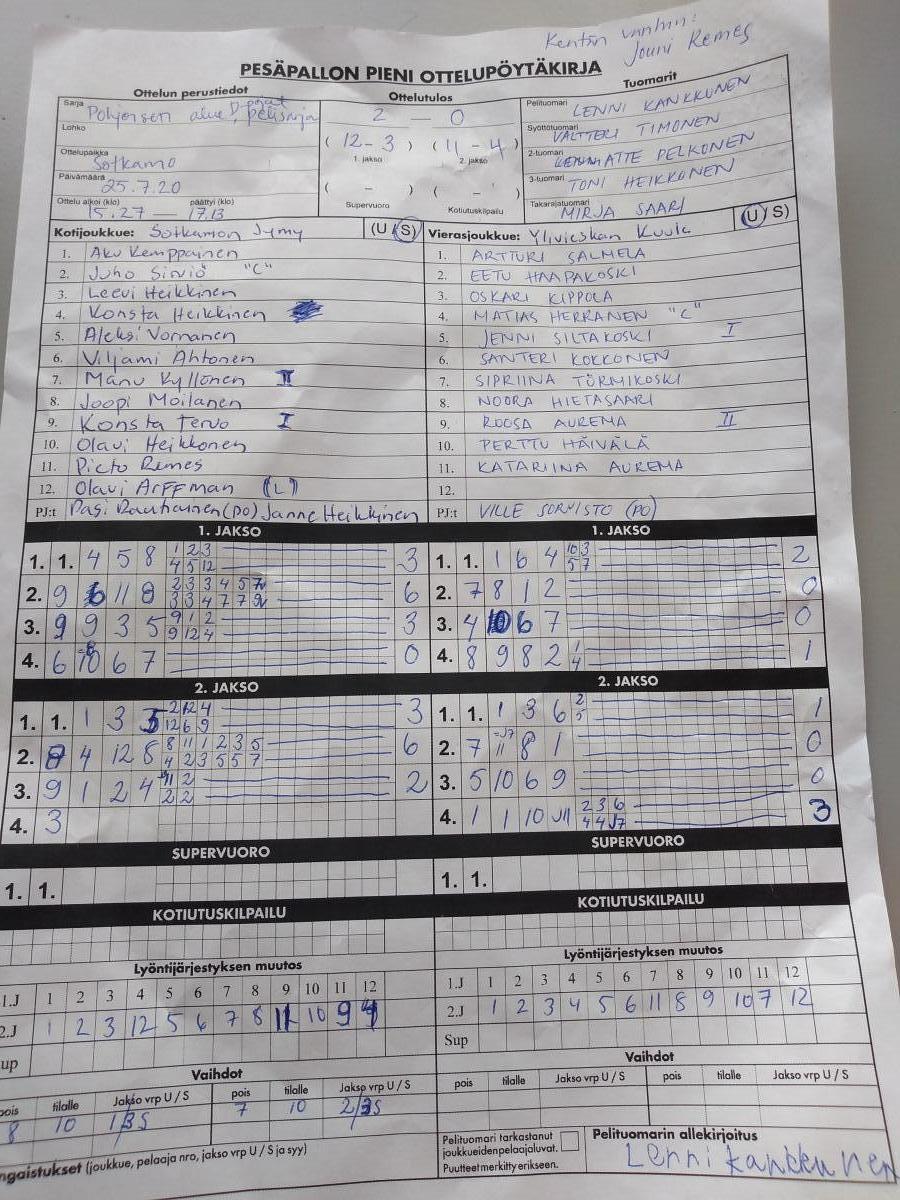 Kentän vanhin:
Jouni Remes
PESÄPALLON PIENI OTTELUPÖYTÄKIRJA
Ottelun perustiedot
Sarja Pohjoisen alue, D-pojat pelisarja
Lohko
Ottelupaikka Sotkamo
Päivämäärä 25.7.20
Ottelu alkoi (klo) päättyi (klo)
15.27 — 17.13
Ottelutulos
2 — 0
( 12 - 3 ) ( 11 - 4 )
1. jakso 2. jakso
( - ) ( - )
Supervuoro Kotiutuskilpailu
Tuomarit
Pelituomari LENNI KANKKUNEN
Syöttötuomari VALTTERI TIMONEN
2-tuomari ATTE PELKONEN
3-tuomari TONI HEIKKONEN
Takarajatuomari MIRJA SAARI
Kotijoukkue: Sotkamon Jymy (U / S)
1. Aku Kemppainen
2. Juho Sirviö "C"
3. Leevi Heikkinen
4. Konsta Heikkinen
5. Aleksi Vornanen
6. Viljami Ahtonen
7. Manu Kyllönen II
8. Joopi Moilanen
9. Konsta Tervo I
10. Olavi Heikkonen
11. Picto Remes
12. Olavi Arffman (L)
PJ:t Pasi Rauhainen (PO) Janne Heikkinen
Vierasjoukkue: Ylivieskan Kuula (U / S)
1. ARTTURI SALMELA
2. EETU HAAPAKOSKI
3. OSKARI KIPPOLA
4. MATIAS HERRANEN "C"
5. JENNI SILTAKOSKI I
6. SANTERI KOKKONEN
7. SIPRIINA TÖRMIKOSKI
8. NOORA HIETASAARI
9. ROOSA AUREMA II
10. PERTTU HÄIVÄLÄ
11. KATARIINA AUREMA
12.
PJ:t VILLE SORMISTO (PO)
1. JAKSO
1. 1. 4 5 8 1 2 3 3
4 5 12
2. 9 6 11 8 2 3 3 4 5 7 6
3 3 4 7 7 9
3. 9 9 3 5 9 1 2 3
9 12 4
4. 6 10 6 7 0
1. JAKSO
1. 1. 1 6 4 10 3 2
5 7
2. 7 8 1 2 0
3. 4 10 6 7 0
4. 8 9 8 2 1 1
4
2. JAKSO
1. 1. 1 3 3 2 12 4 3
12 6 9
2. 8 4 12 8 8 11 1 2 3 5 6
4 2 3 5 5 7
3. 9 1 2 4 11 2 2
2 2
4. 3
2. JAKSO
1. 1. 1 3 6 2 1
5
2. 7 11 8 1 0
3. 5 10 6 9 0
4. 1 1 10 J11 2 3 6 3
4 4 J7
SUPERVUORO
1. 1.
SUPERVUORO
1. 1.
KOTIUTUSKILPAILU
KOTIUTUSKILPAILU
Lyöntijärjestyksen muutos
1.J 1 2 3 4 5 6 7 8 9 10 11 12
2.J 1 2 3 12 5 6 7 8 11 10 9 4
up
Lyöntijärjestyksen muutos
1.J 1 2 3 4 5 6 7 8 9 10 11 12
2.J 1 2 3 4 5 6 11 8 9 10 7 12
Sup
Vaihdot
pois tilalle Jakso vrp U / S pois tilalle Jakso vrp U / S
8 10 1/3S 7 10 2/3S
Vaihdot
pois tilalle Jakso vrp U / S pois tilalle Jakso vrp U / S
ngaistukset (joukkue, pelaaja nro, jakso vrp U / S ja syy)
Pelituomari tarkastanut
joukkueiden pelaajaluvat.
Puutteet merkitty erikseen.
Pelituomarin allekirjoitus
Lenni Kankkunen